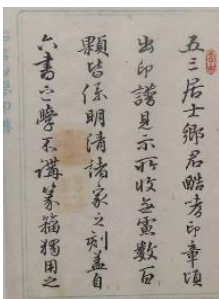 五三居士鄉君酷嗜印章頃
出印譜見示所收無慮數百
顆皆係明清諸家之刻蓋自
六書之學不講篆籀獨用之